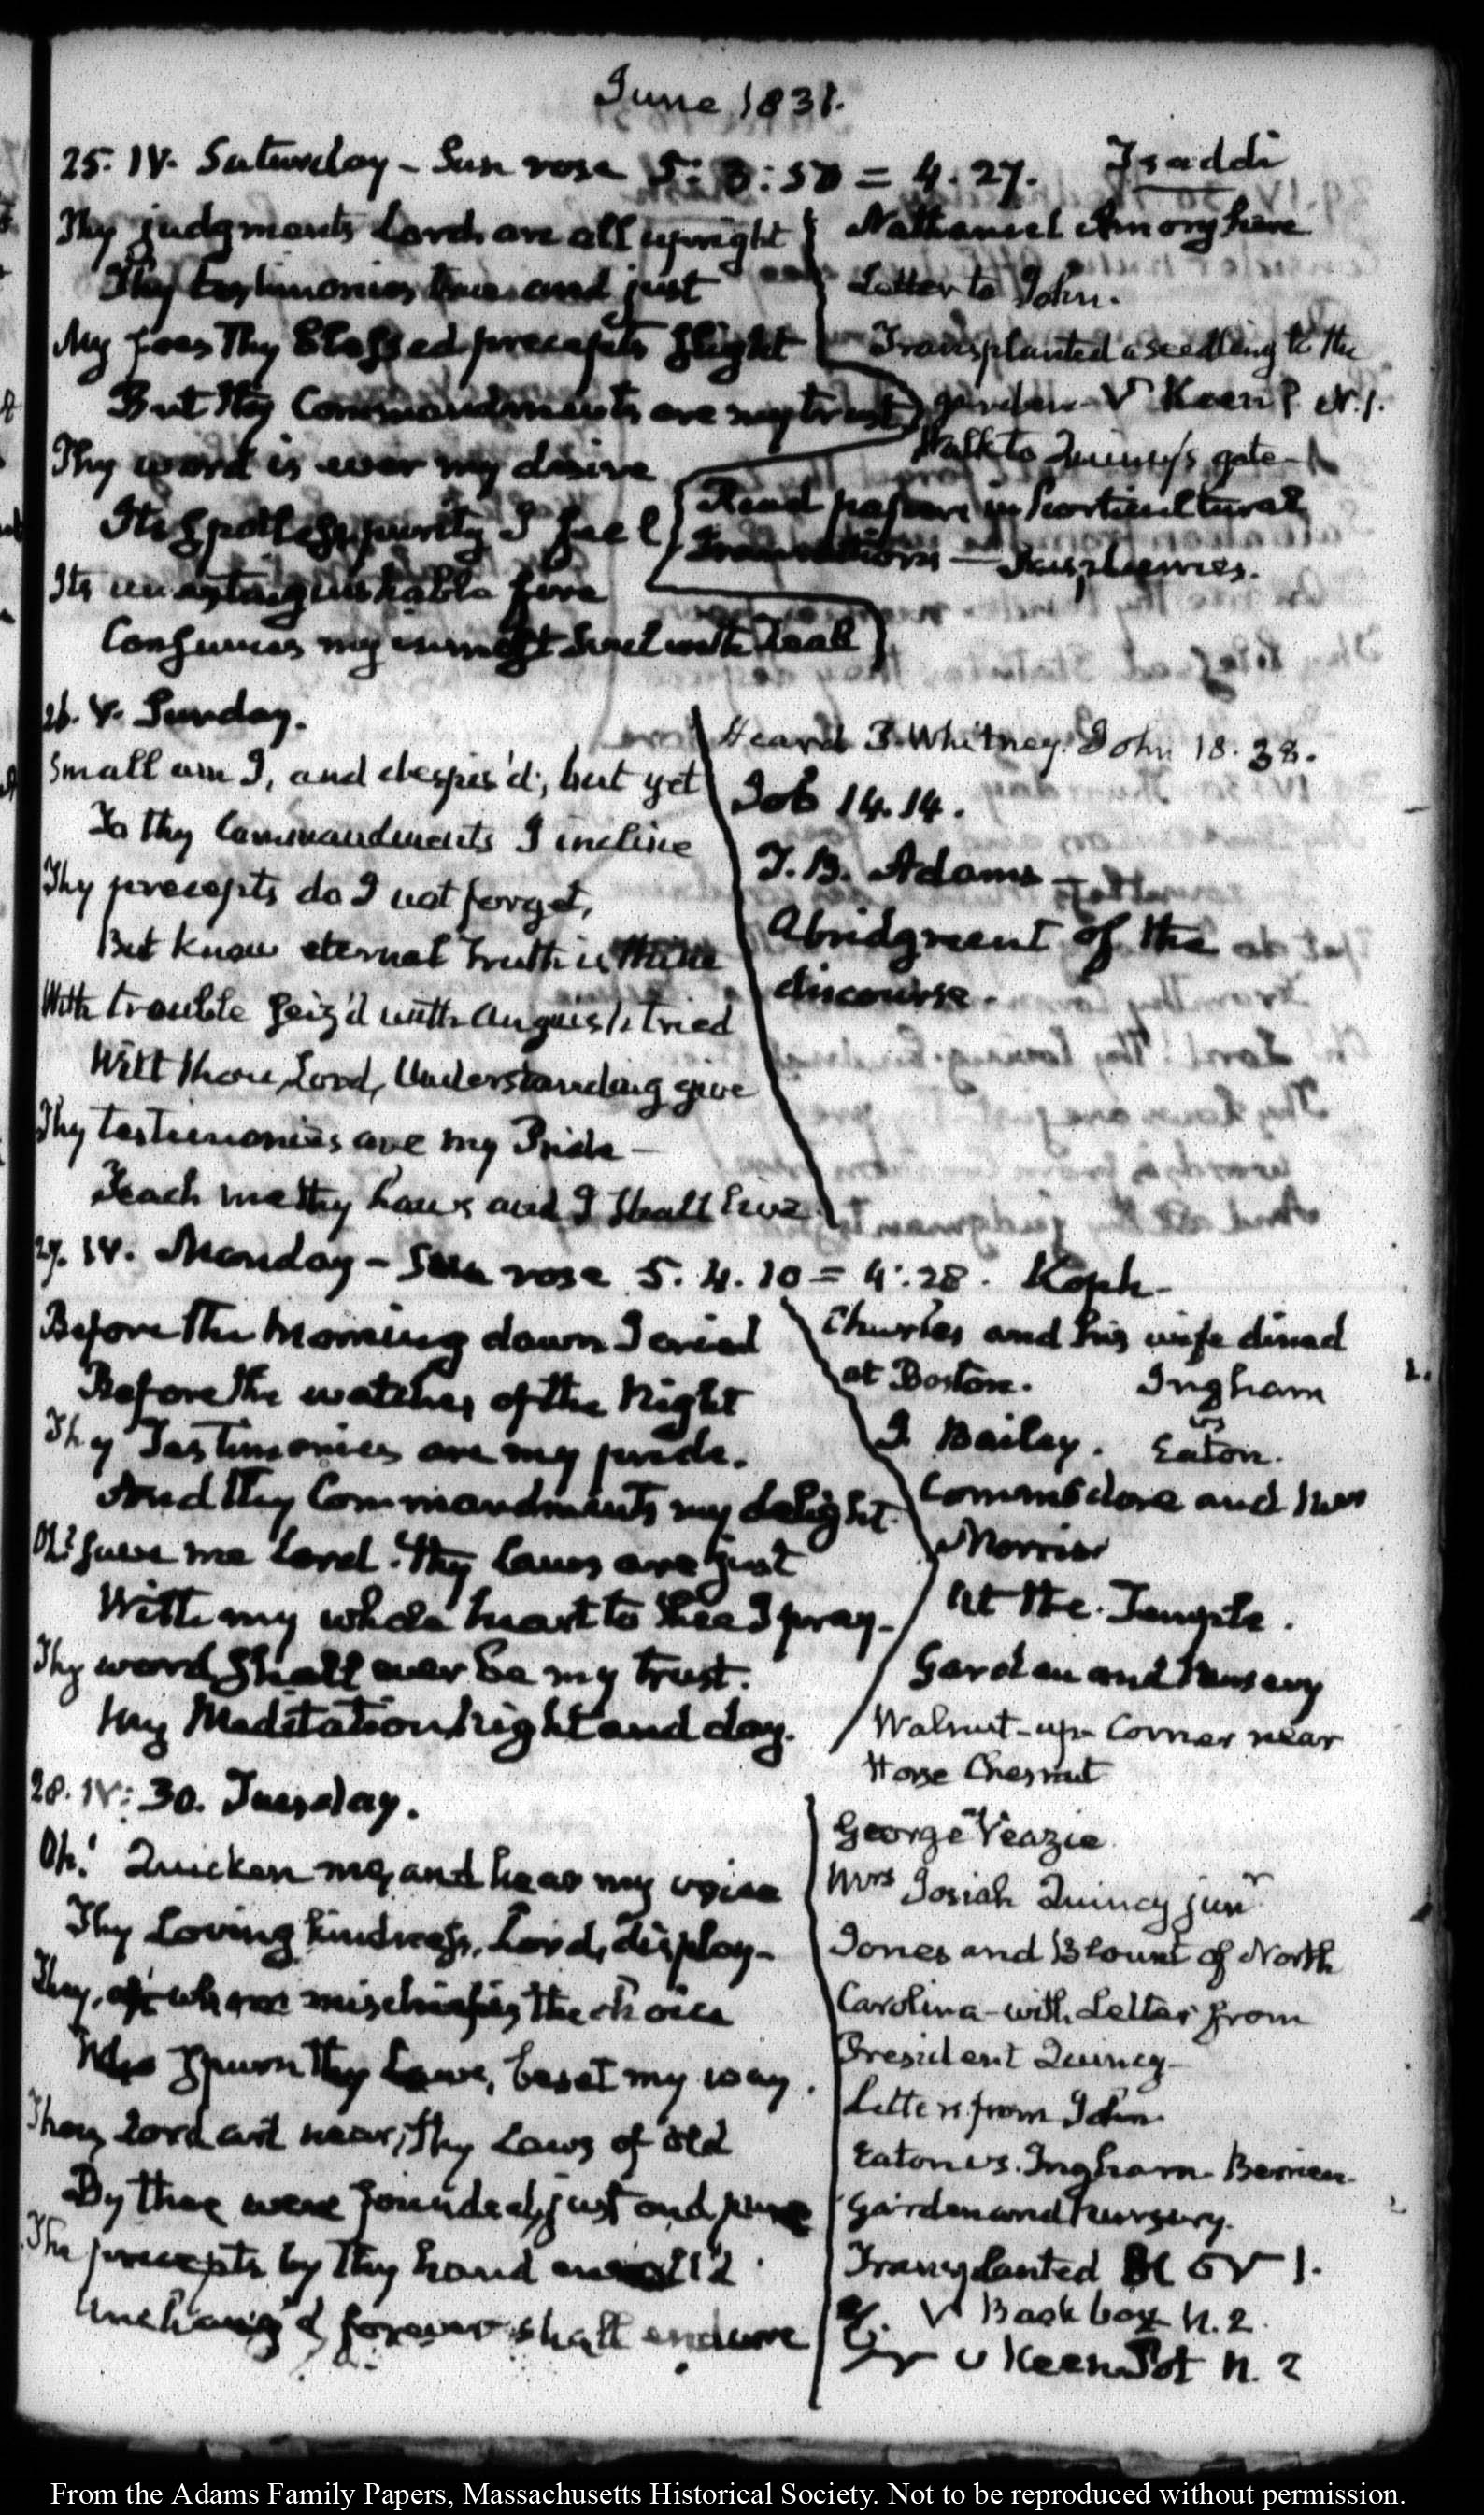 June 1831.
25. IV. Saturday - Sun rose 5: 3:50 = 4.27. Tsaddi
Thy judgments Lord are all upright
Thy testimonies true and just
My foes Thy blessed precepts slight
But thy Commandments are my trust
Thy word is ever my desire
Its spotless purity I feel
Its unextinguishable fire
Consumes my inmost Soul with Zeal
Nathaniel Amory here
Letter to John.
Transplanted a seedling to the
garden V Keen P. N.1.
Walk to Quincy's gate
Read papers in horticultural
Transactions — Raspberries.
26. V. Sunday.
Small am I, and despis'd; but yet
To thy Commandments I incline
Thy precepts do I not forget,
But know eternal truth is thine
With trouble seiz'd with anguish tried
Wilt thou, Lord, Understanding give
Thy testimonies are my Pride —
Teach me thy Laws and I shall live
Heard Whitney. John 18. 38.
Job 14.14.
T. B. Adams —
Abridgment of the
discourse.
27. IV. Monday - Sun rose 5. 4. 10 = 4:28. Koph
Before the morning dawn I cried
Before the watches of the Night
Thy Testimonies are my pride.
And thy Commandments my delight.
Oh! save me Lord. Thy Laws are just
With my whole heart to thee I pray —
Thy word shall ever be my trust.
My Meditation Night and day.
Charles and his wife dined
at Boston. Ingham
vs
J. Bailey. Eaton.
Commodore and Mrs
Morris
At the Temple.
Garden and Nursery
Walnut - up - Corner near
Horse Chesnut
28. IV: 30. Tuesday.
Oh! Quicken me, and hear my voice
Thy Loving kindness, Lord, display —
They, of whom mischief is the choice
Who spurn thy Laws, beset my way.
Thou, Lord art near, thy Laws of old
By thee were founded, just and pure
The precepts by Thy hand
Unchang'd forever shall endure
George Veazie
Mrs Josiah Quincy junr
Jones and Blount of North
Carolina - with Letter from
President Quincy —
Letters from John
Eaton vs. Ingham - Berrien
Garden and Nursery.
Transplanted 1.
V Back box N. 2.
V Keen Pot N. 2
From the Adams Family Papers, Massachusetts Historical Society. Not to be reproduced without permission.